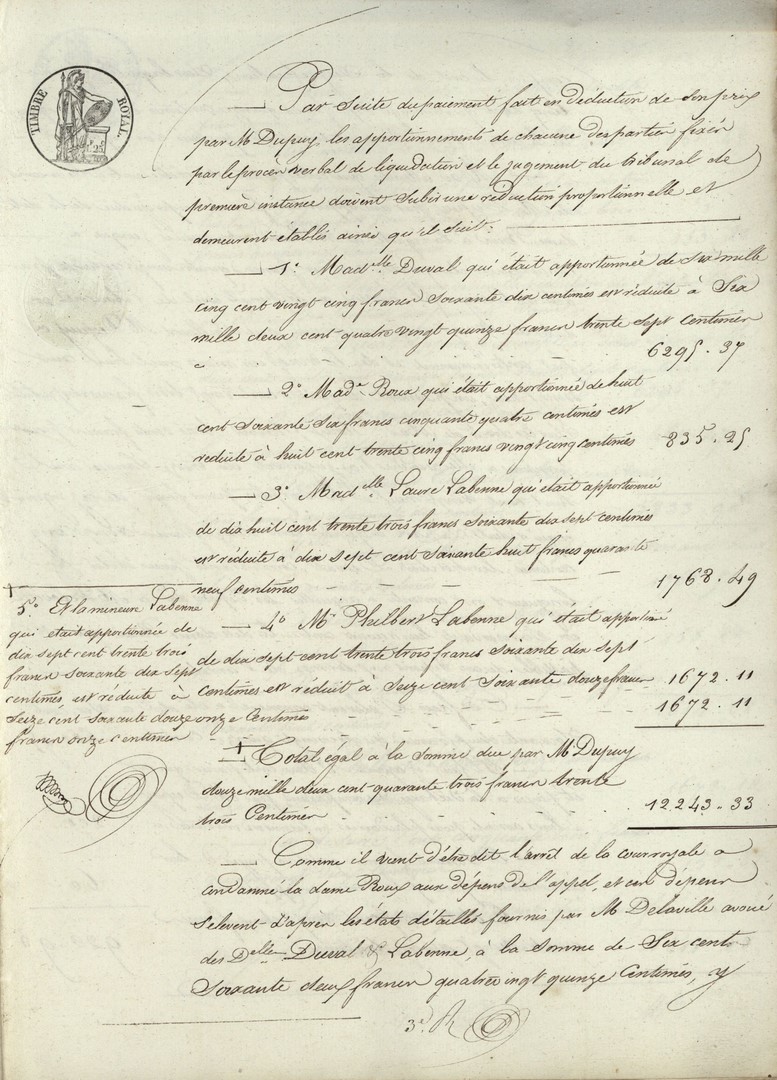 TIMBRE ROYAL
Par suite du paiement fait en déduction de son prix
par Mr Dupuy, les apportionnements de chacune des parties fixés
par le procès verbal de liquidation et le jugement du tribunal de
première instance doivent subir une réduction proportionnelle et
demeurent établis ainsi qu'il suit:
1° Madelle Duval qui était apportionnée de six mille
cinq cent vingt cinq francs soixante dix centimes est réduite à Six
mille deux cent quatre vingt quinze francs trente sept Centimes
6295.37
2° Made Roux qui était apportionnée de huit
cent soixante six francs cinquante quatre centimes est
reduite à huit cent trente cinq francs vingt cinq centimes 835.25
3° Madelle Laure Labenne qui était apportionné
de dix huit cent trente trois francs soixante dix sept centimes
est réduite à dix sept cent soixante huit francs quarante
neuf centimes 1768.49
4° Mr Philbert Labenne qui était apportioné
de dix sept cent trente trois francs soixante dix sept
centimes est réduit à seize cent soixante douze francs 1672.11
onze Centimes 1672.11
5° Et la mineure Labenne
qui était apportionnée de
dix sept cent trente trois
francs soixante dix sept
centimes, est réduite à
seize cent soixante douze
francs onze centimes
Total égal à la somme due par Mr Dupuy
douze mille deux cent quarante trois francs trente
trois Centimes 12.243.33
Comme il vient d'être dit l'arrêt de la cour royale a
condamné la dame Roux aux dépens de l'appel, et ces dépens
s'élevent d'après les états détaillés fournis par Mr Delaville avoué
des Delles Duval & Labenne, à la somme de Six cent
soixante deux francs quatre vingt quinze Centimes, y
3e. R